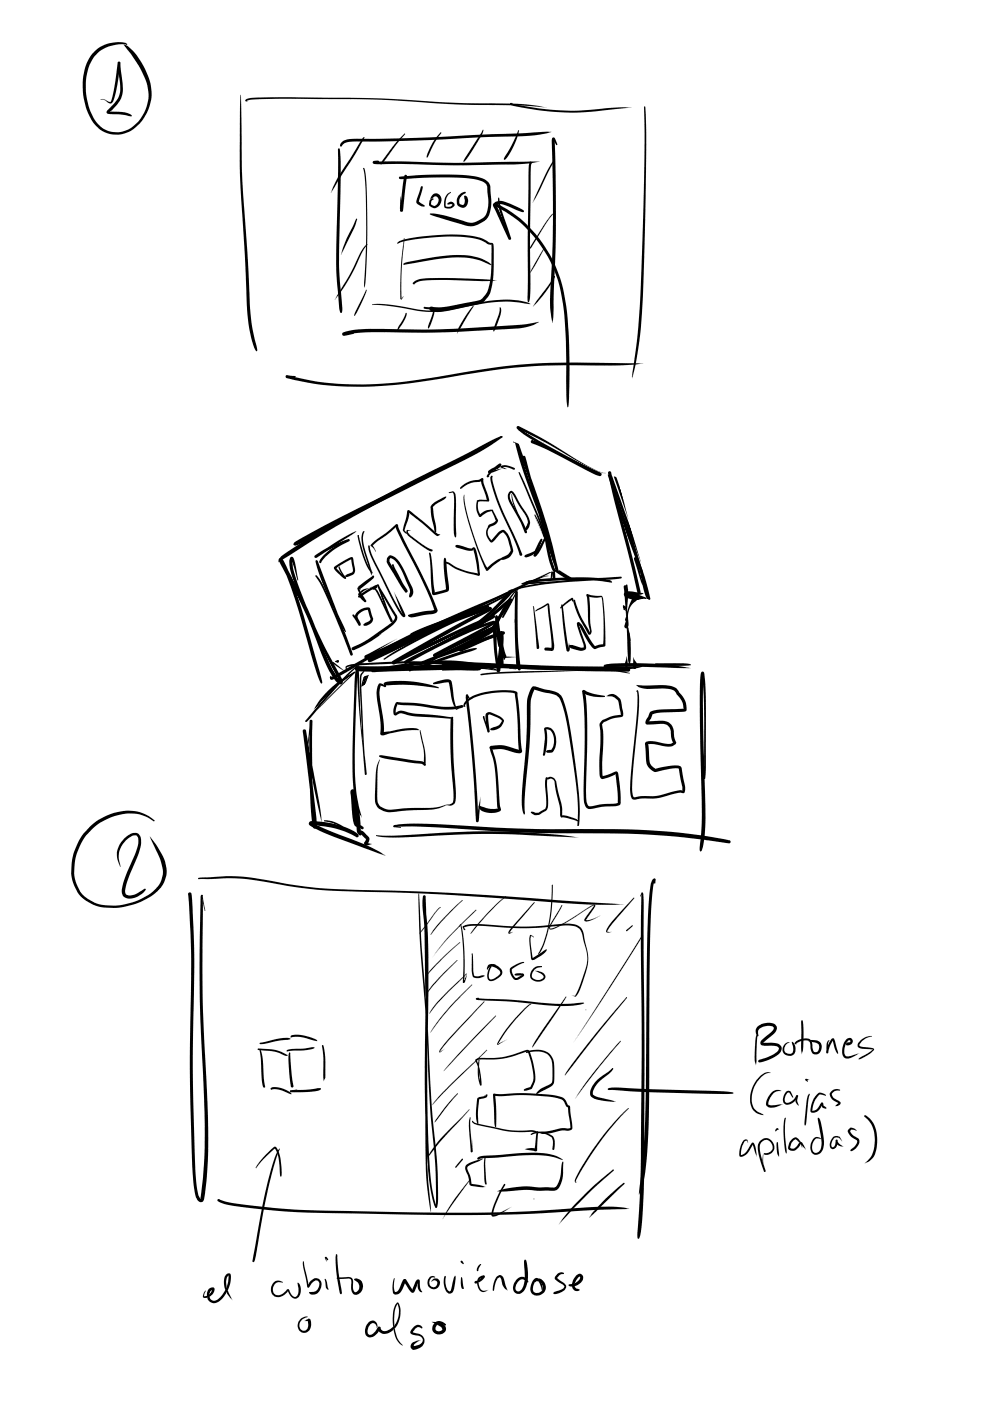 1
LOGO
BOXED
IN
SPACE
2
LOGO
Botones
(cajas
apiladas)
el cubito moviéndose
o algo